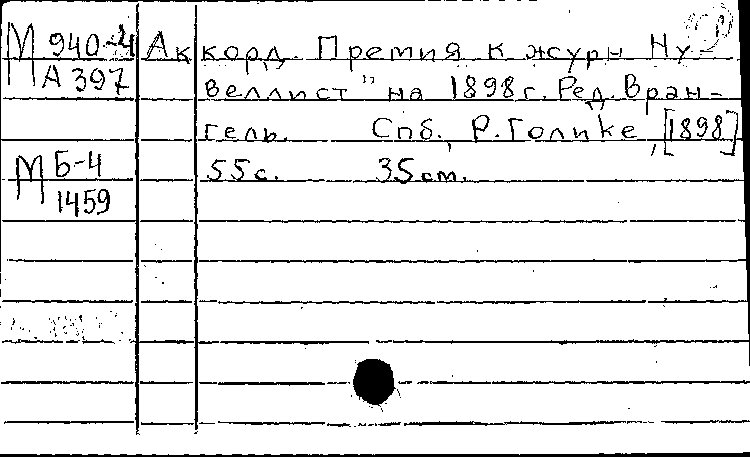 М 940-4 Аккорд. Премия к журн Ну
А 397 веллист" на 1898 г. Ред. Вран-
гель. Спб., Р. Голике, [1898]
М Б-4 55 с. 35 см.
1459